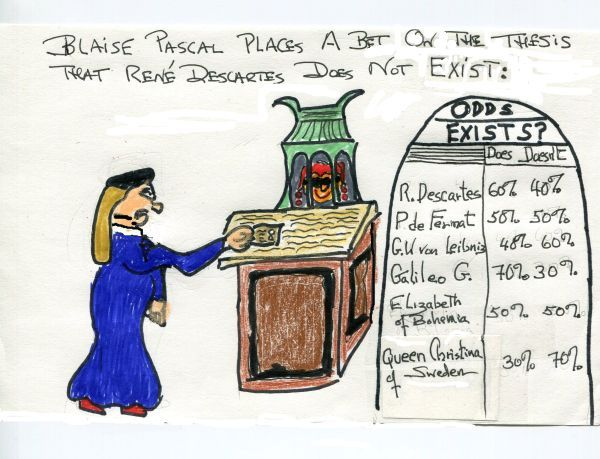 BLAISE PASCAL PLACES A BET ON THE THESIS
THAT RENÉ DESCARTES DOES NOT EXIST:
ODDS
EXISTS?
Does Doesn't
R. Descartes 60% 40%
P. de Fermat 50% 50%
G.W von Leibniz 48% 60%
Galileo G. 70% 30%
Elizabeth
of Bohemia 50% 50%
Queen Christina
of Sweden 30% 70%